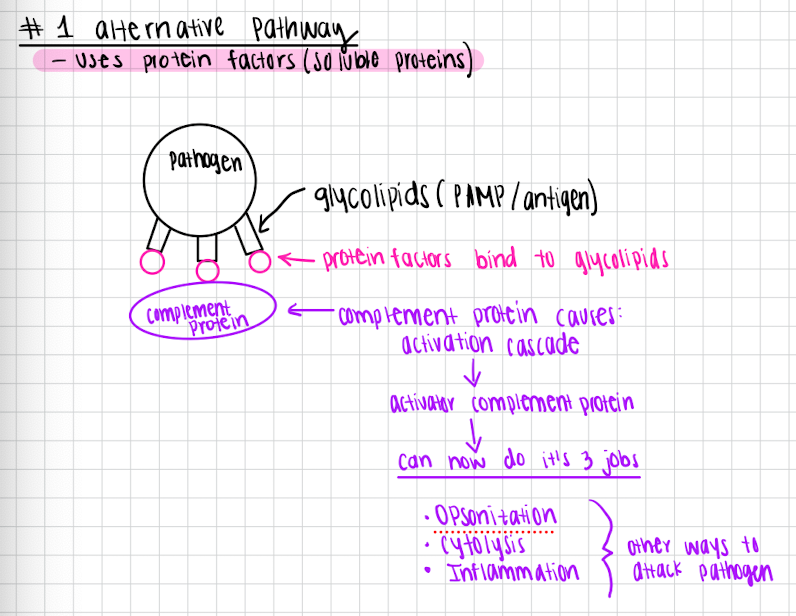 #1 alternative pathway
- uses protein factors (soluble proteins)
pathogen
glycolipids (PAMP/antigen)
protein factors bind to glycolipids
complement
protein
complement protein causes:
activation cascade
activator complement protein
can now do it's 3 jobs
• Opsonitation
• Cytolysis
• Inflammation
other ways to
attack pathogen